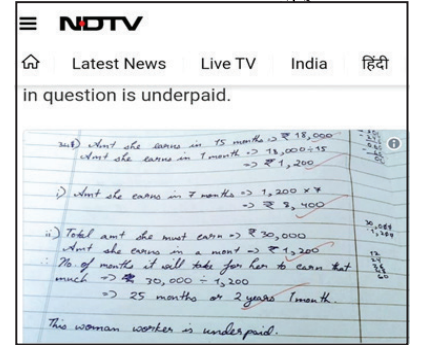 NDTV
Latest News Live TV India हिंदी
in question is underpaid.
Amt she earns in 15 months => ₹ 18,000
Amt she earns in 1 month => 18,000÷15
=> ₹ 1,200
i) Amt she earns in 7 months => 1,200 x 7
=> ₹ 8,400
ii) Total amt she must earn => ₹ 30,000
Amt she earns in a mont => ₹ 1,200
∴ No. of months it will take for her to earn that
much => ₹ 30,000 ÷ 1,200
=> 25 months or 2 years 1 month.
This woman worker is underpaid.